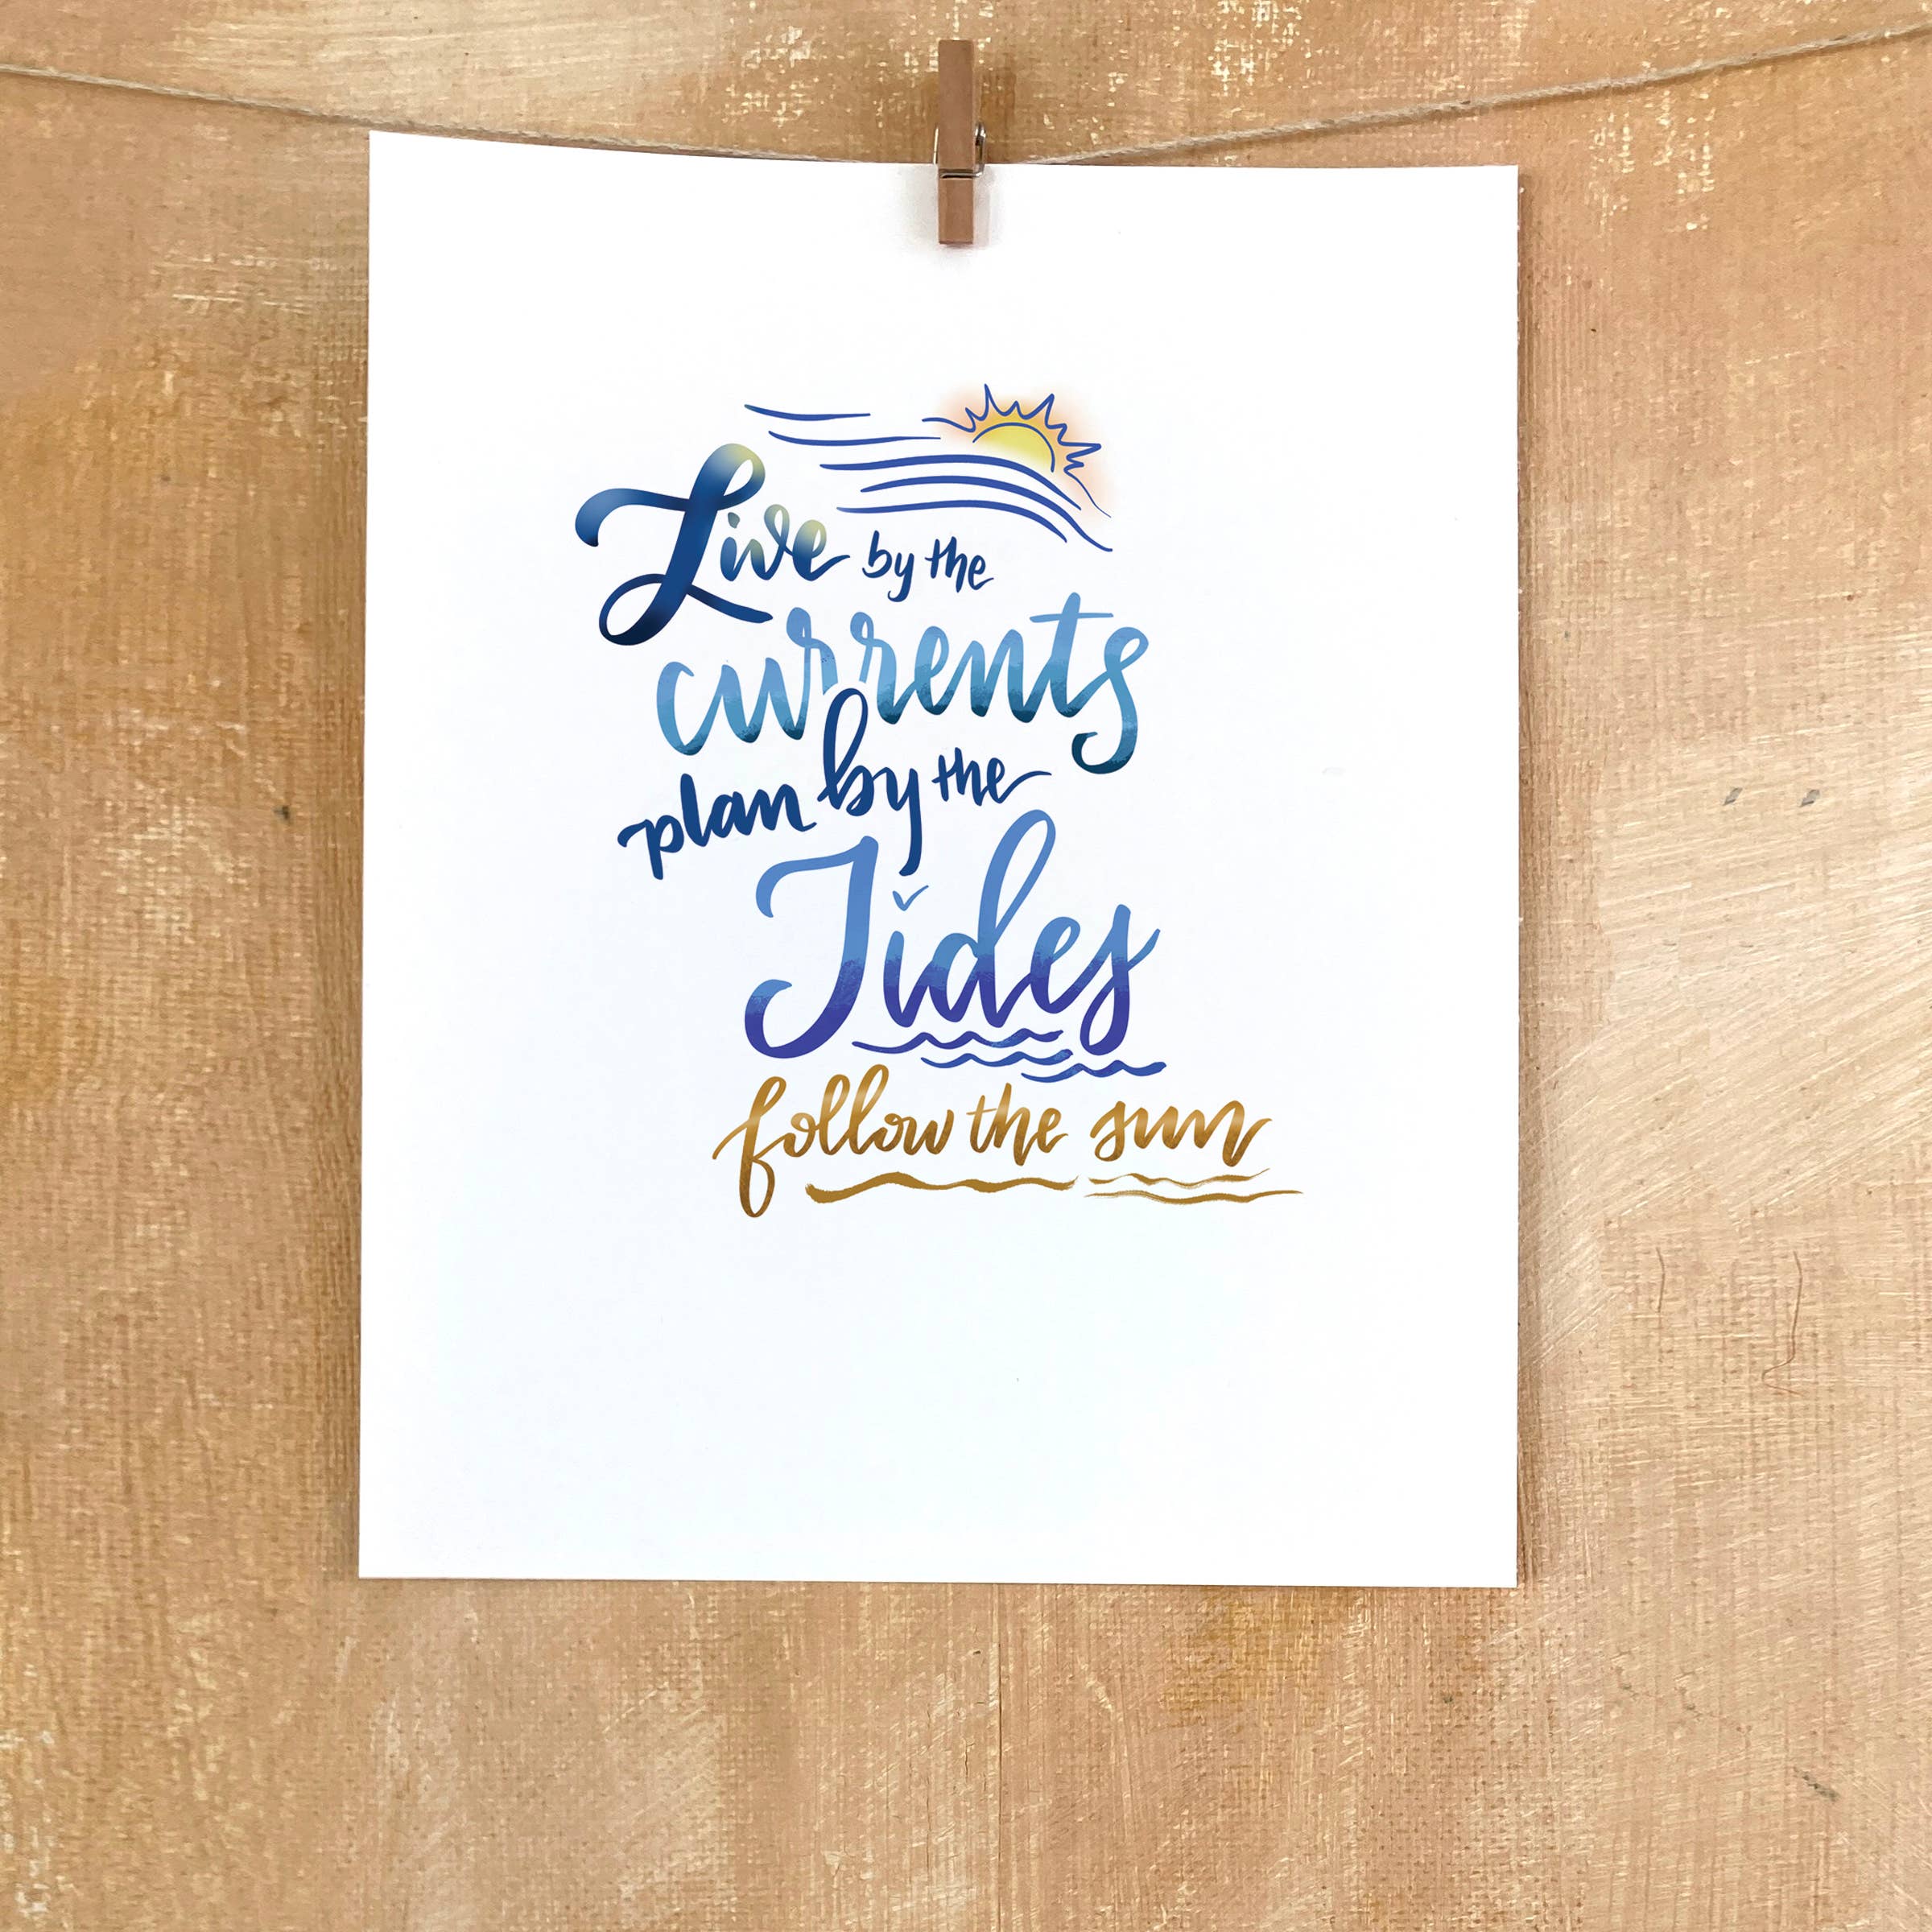 Live by the
currents
plan by the
Tides
follow the sun